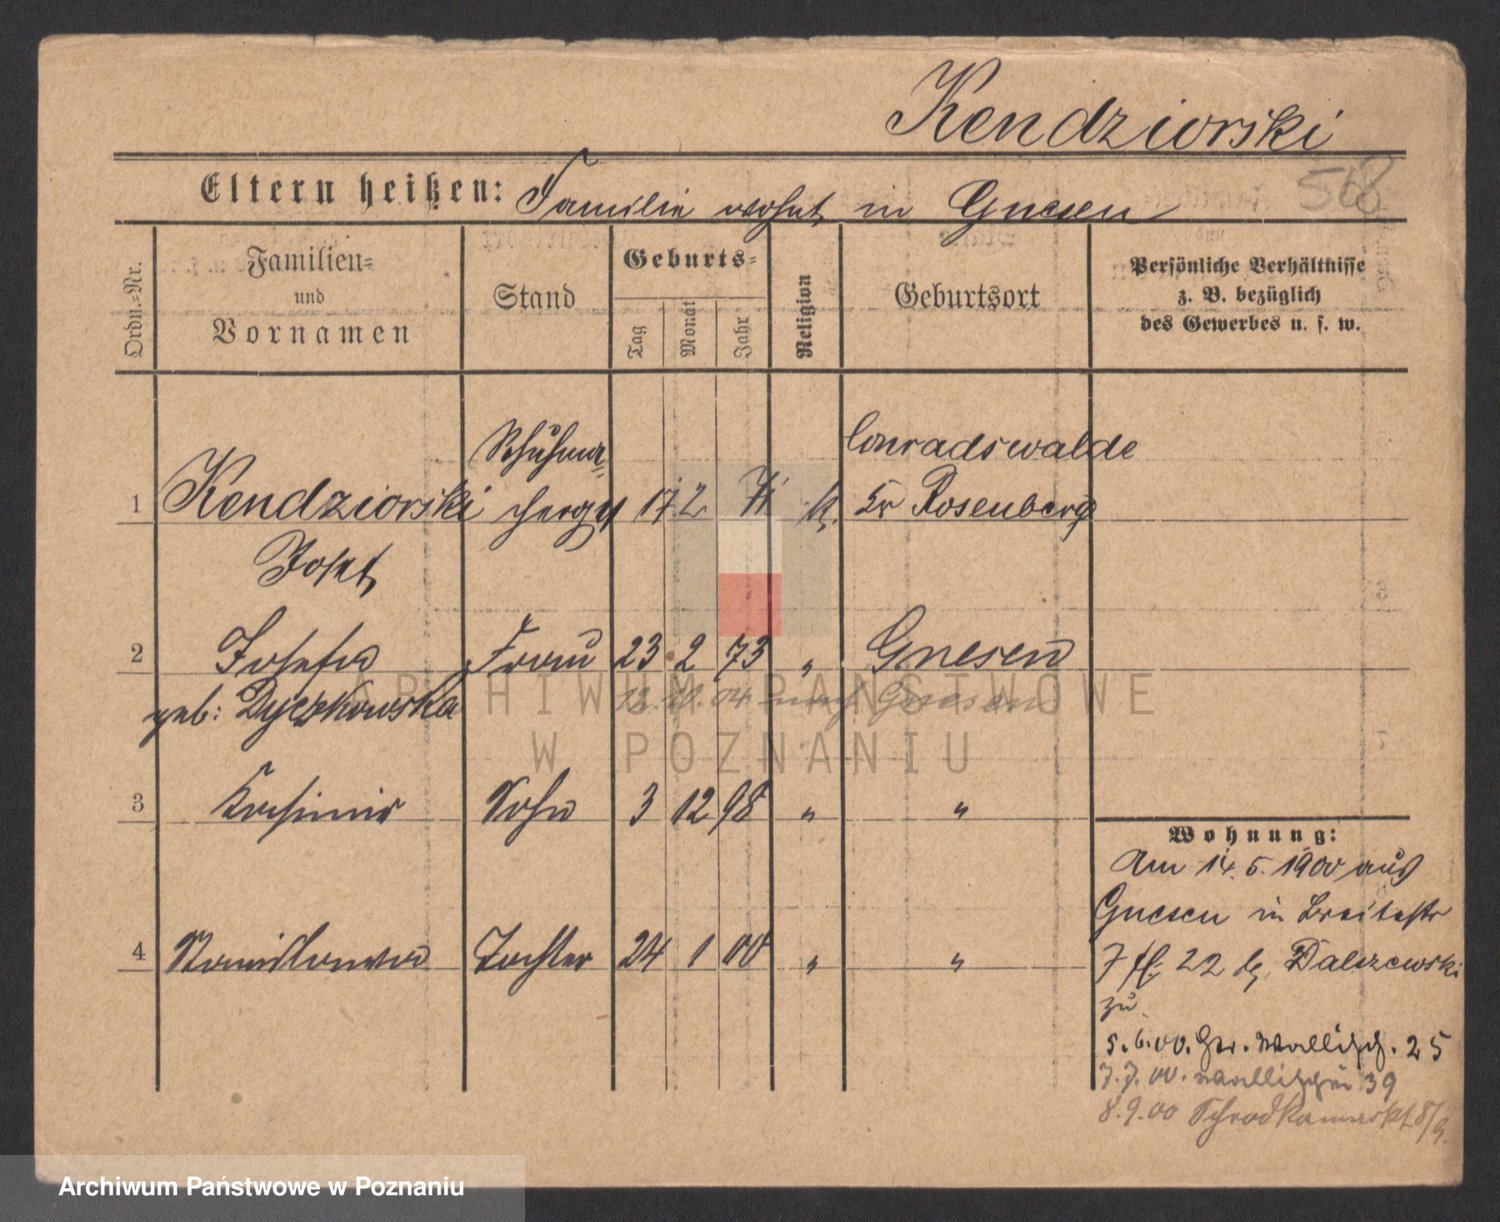 Kendziorski
568
Eltern heißen: Familie wohnt in Gnesen
Ordn.=Nr.
Familien=
und
Vornamen
Stand
Geburts=
Tag
Monat
Jahr
Religion
Geburtsort
Persönliche Verhältnisse
z. B. bezüglich
des Gewerbes u. s. w.
Schuhma= Conradswalde
1 Kendziorski 17 2 71 k. Kr Rosenberg
Josef
2 Josefa Frau 23 2 73 " Gnesen
geb: Dyczkowska
12.10.04 nach Gnesen
3 Kasimir Sohn 3 12 98 " "
4 Stanislawa Tochter 24 1 00 " "
Wohnung:
Am 14. 5. 1900 aus
Gnesen in Breitestr
7 22 b Dalszewski
zu
5.6.00. Gr. Wallisch. 25
7.7.00. Wallischei 39
8.9.00 Schrodkamarkt 8/9.
ARCHIWUM PAŃSTWOWE
W POZNANIU
Archiwum Państwowe w Poznaniu